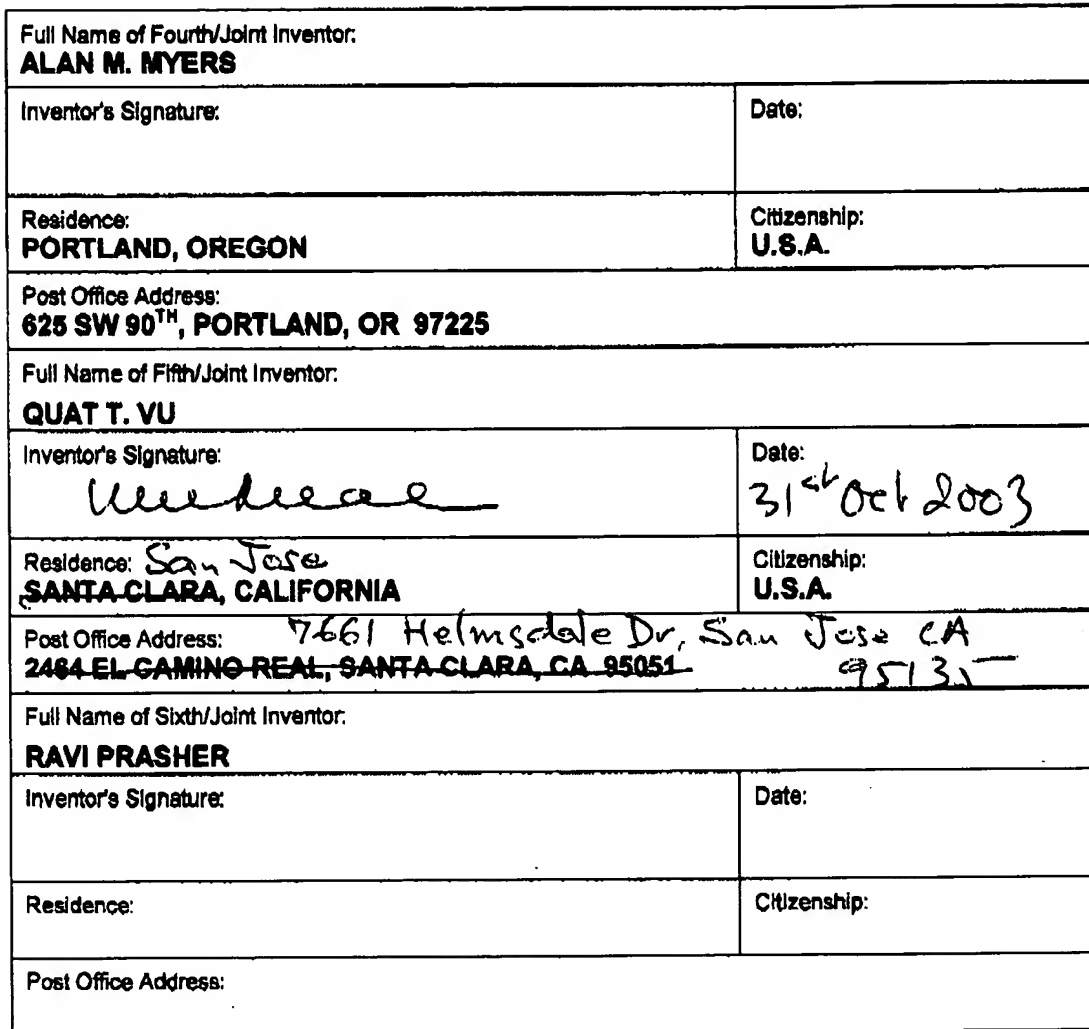 Full Name of Fourth/Joint Inventor:
ALAN M. MYERS
Inventor's Signature: Date:
Residence: Citizenship:
PORTLAND, OREGON U.S.A.
Post Office Address:
625 SW 90TH, PORTLAND, OR 97225
Full Name of Fifth/Joint Inventor:
QUAT T. VU
Inventor's Signature: Date:
31st Oct 2003
Residence: San Jose Citizenship:
SANTA CLARA, CALIFORNIA U.S.A.
Post Office Address: 7661 Helmsdale Dr, San Jose CA
2464 EL CAMINO REAL, SANTA CLARA, CA 95051 95135
Full Name of Sixth/Joint Inventor:
RAVI PRASHER
Inventor's Signature: Date:
Residence: Citizenship:
Post Office Address: